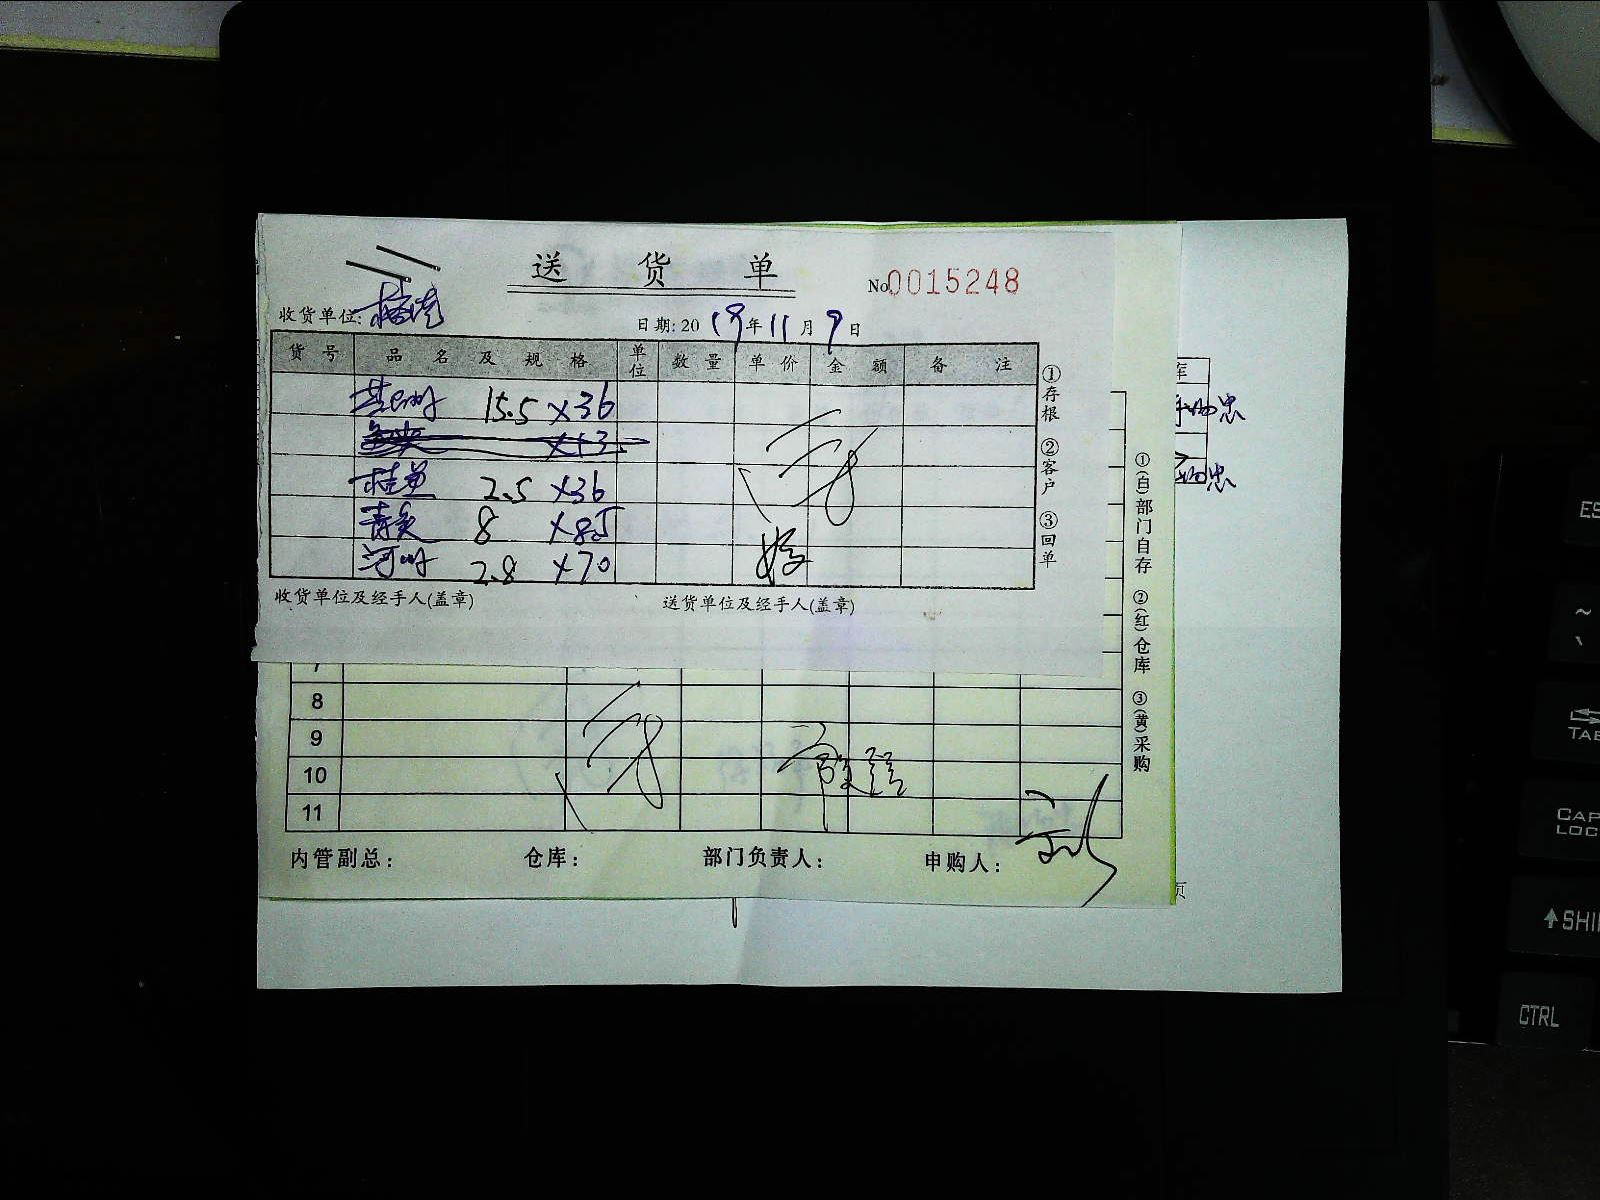 送货单
No.0015248
收货单位:
日期: 2019年11月9日
货号 品名及规格 单位 数量 单价 金额 备注
15.5 ×36
×13
桂鱼 2.5 ×36
8 ×85
河虾 2.8 ×70
①存根 ②客户 ③回单
收货单位及经手人(盖章) 送货单位及经手人(盖章)
库
忠
忠
①(白)部门自存 ②(红)仓库 ③(黄)采购
7
8
9
10
11
内管副总: 仓库: 部门负责人: 申购人:
页
ES
~
TAB
CAP
LOC
SHI
CTRL